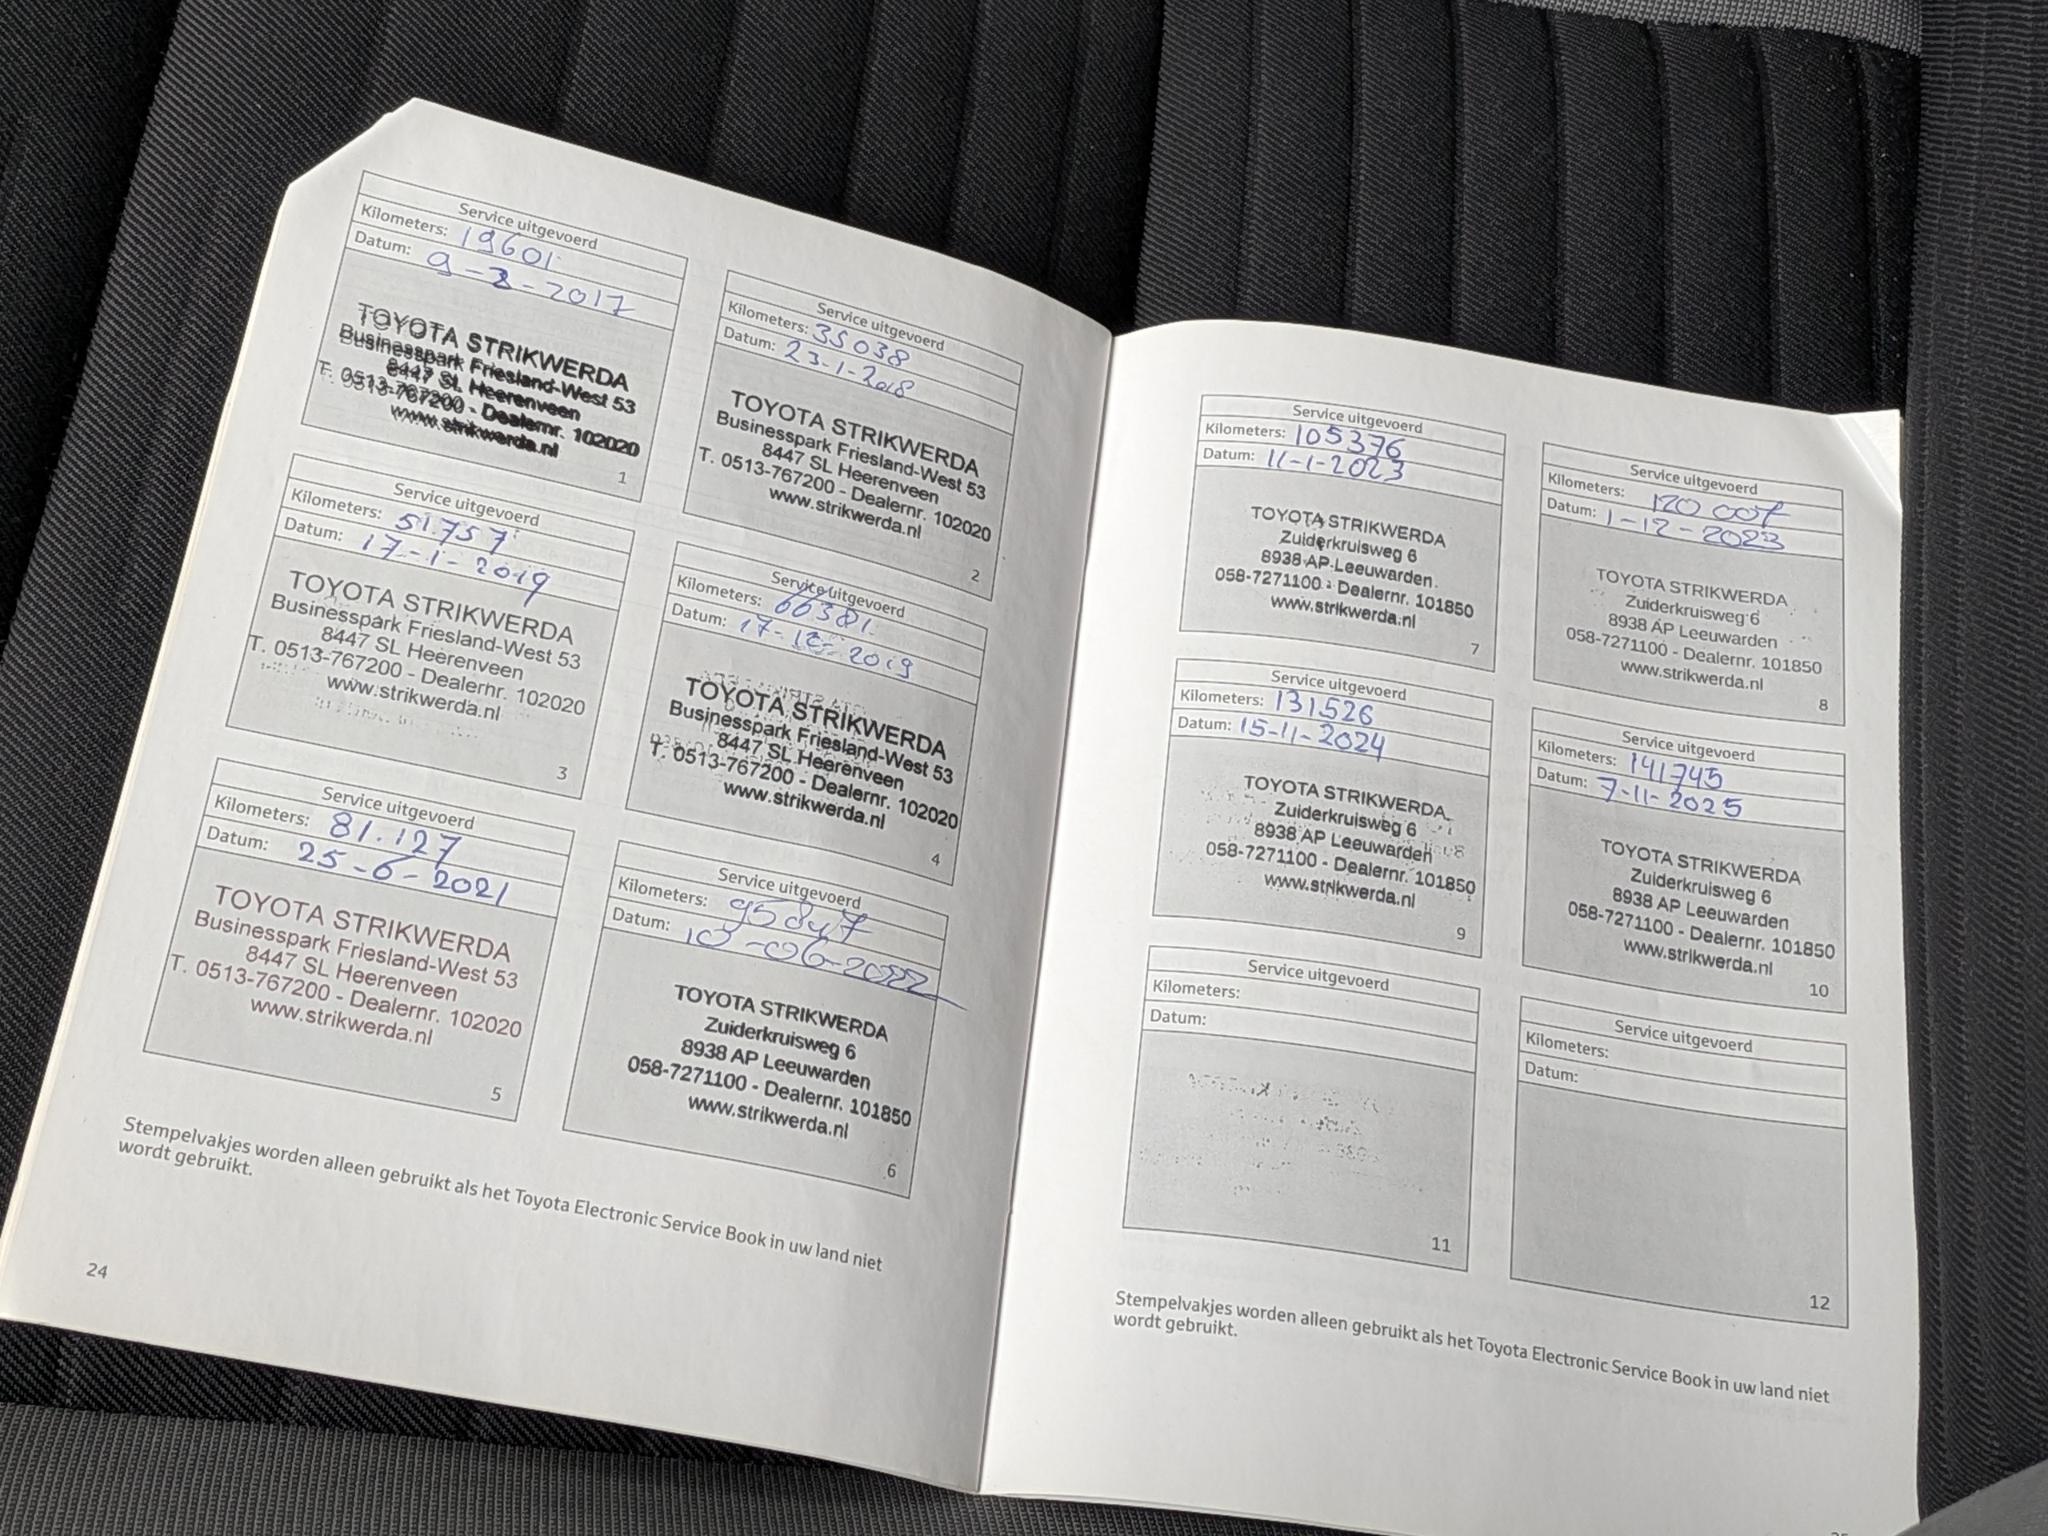 Service uitgevoerd
Kilometers: 19601
Datum: 9-2-2017
TOYOTA STRIKWERDA
Businesspark Friesland-West 53
8447 SL Heerenveen
T. 0513-767200 - Dealernr. 102020
www.strikwerda.nl
1
Service uitgevoerd
Kilometers: 35038
Datum: 23-1-2018
TOYOTA STRIKWERDA
Businesspark Friesland-West 53
8447 SL Heerenveen
T. 0513-767200 - Dealernr. 102020
www.strikwerda.nl
2
Service uitgevoerd
Kilometers: 51.757
Datum: 17-1-2019
TOYOTA STRIKWERDA
Businesspark Friesland-West 53
8447 SL Heerenveen
T. 0513-767200 - Dealernr. 102020
www.strikwerda.nl
3
Service uitgevoerd
Kilometers: 66381
Datum: 17-12-2019
TOYOTA STRIKWERDA
Businesspark Friesland-West 53
8447 SL Heerenveen
T. 0513-767200 - Dealernr. 102020
www.strikwerda.nl
4
Service uitgevoerd
Kilometers: 81.127
Datum: 25-6-2021
TOYOTA STRIKWERDA
Businesspark Friesland-West 53
8447 SL Heerenveen
T. 0513-767200 - Dealernr. 102020
www.strikwerda.nl
5
Service uitgevoerd
Kilometers: 95847
Datum: 10-06-2022
TOYOTA STRIKWERDA
Zuiderkruisweg 6
8938 AP Leeuwarden
058-7271100 - Dealernr. 101850
www.strikwerda.nl
6
Stempelvakjes worden alleen gebruikt als het Toyota Electronic Service Book in uw land niet
wordt gebruikt.
24
Service uitgevoerd
Kilometers: 105376
Datum: 11-1-2023
TOYOTA STRIKWERDA
Zuiderkruisweg 6
8938 AP Leeuwarden
058-7271100 - Dealernr. 101850
www.strikwerda.nl
7
Service uitgevoerd
Kilometers: 120 007
Datum: 1-12-2023
TOYOTA STRIKWERDA
Zuiderkruisweg 6
8938 AP Leeuwarden
058-7271100 - Dealernr. 101850
www.strikwerda.nl
8
Service uitgevoerd
Kilometers: 131526
Datum: 15-11-2024
TOYOTA STRIKWERDA
Zuiderkruisweg 6
8938 AP Leeuwarden
058-7271100 - Dealernr. 101850
www.strikwerda.nl
9
Service uitgevoerd
Kilometers: 141745
Datum: 7-11-2025
TOYOTA STRIKWERDA
Zuiderkruisweg 6
8938 AP Leeuwarden
058-7271100 - Dealernr. 101850
www.strikwerda.nl
10
Service uitgevoerd
Kilometers:
Datum:
11
Service uitgevoerd
Kilometers:
Datum:
12
Stempelvakjes worden alleen gebruikt als het Toyota Electronic Service Book in uw land niet
wordt gebruikt.